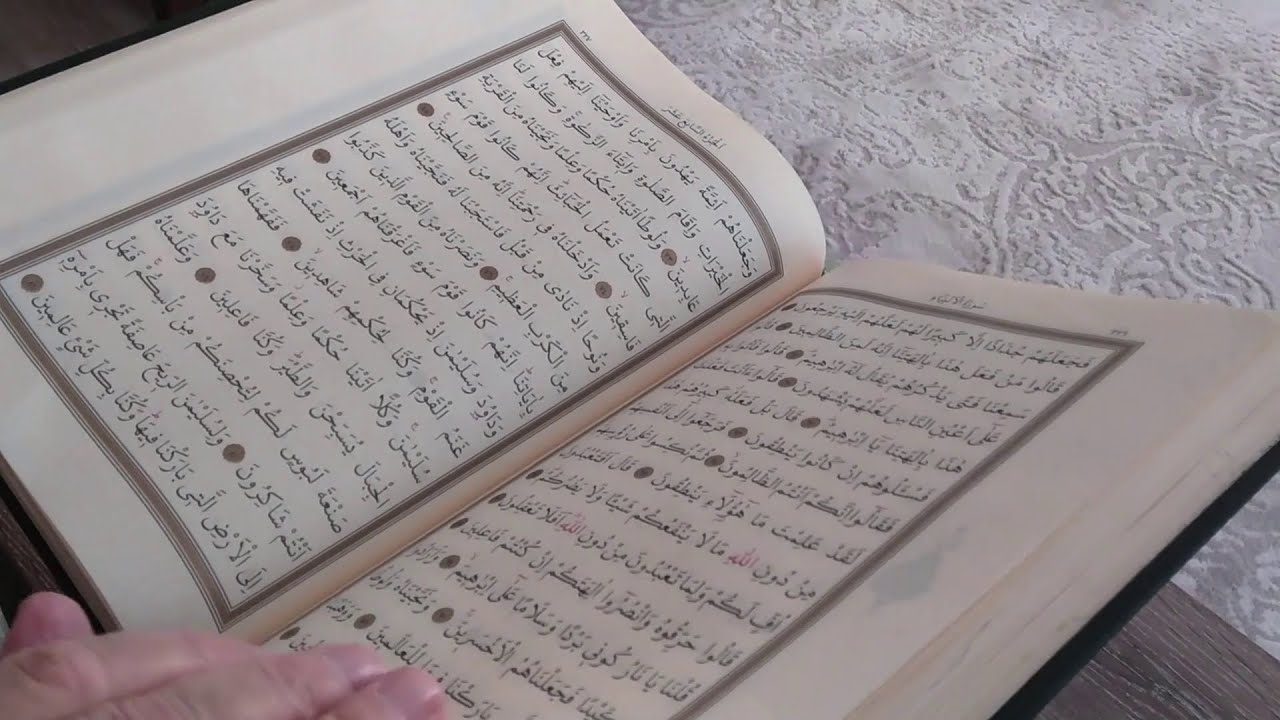 سُورَةُ الْاَنْبِيَاءِ
٣٢٦
فَجَعَلَهُمْ جُذَاذًا اِلَّا كَبِيرًا لَهُمْ لَعَلَّهُمْ اِلَيْهِ يَرْجِعُونَ
قَالُوا مَنْ فَعَلَ هٰذَا بِاٰلِهَتِنَا اِنَّهُ لَمِنَ الظَّالِمِينَ قَالُوا
سَمِعْنَا فَتًى يَذْكُرُهُمْ يُقَالُ لَهُ اِبْرٰهِيمُ قَالُوا فَأْتُوا
عَلٰى اَعْيُنِ النَّاسِ لَعَلَّهُمْ يَشْهَدُونَ قَالُوا ءَاَنْتَ فَعَلْتَ
هٰذَا بِاٰلِهَتِنَا يَا اِبْرٰهِيمُ قَالَ بَلْ فَعَلَهُ كَبِيرُهُمْ هٰذَا
فَسْـَٔلُوهُمْ اِنْ كَانُوا يَنْطِقُونَ فَرَجَعُوا اِلٰى اَنْفُسِهِمْ
فَقَالُوا اِنَّكُمْ اَنْتُمُ الظَّالِمُونَ ثُمَّ نُكِسُوا عَلٰى رُؤُسِهِمْ
لَقَدْ عَلِمْتَ مَا هٰؤُلَاءِ يَنْطِقُونَ قَالَ اَفَتَعْبُدُونَ
مِنْ دُونِ اللّٰهِ مَا لَا يَنْفَعُكُمْ شَيْئًا وَلَا يَضُرُّكُمْ
اُفٍّ لَكُمْ وَلِمَا تَعْبُدُونَ مِنْ دُونِ اللّٰهِ اَفَلَا تَعْقِلُونَ
قَالُوا حَرِّقُوهُ وَانْصُرُوا اٰلِهَتَكُمْ اِنْ كُنْتُمْ فَاعِلِينَ
قُلْنَا يَا نَارُ كُونِي بَرْدًا وَسَلَامًا عَلٰى اِبْرٰهِيمَ وَاَرَادُوا
كَيْدًا فَجَعَلْنَاهُمُ الْاَخْسَرِينَ وَنَجَّيْنَاهُ وَلُوطًا
بَارَكْنَا فِيهَا لِلْعَالَمِينَ وَوَهَبْنَا
اَلْجُزْءُ السَّابِعَ عَشَرَ
٣٢٧
وَجَعَلْنَاهُمْ اَئِمَّةً يَهْدُونَ بِاَمْرِنَا وَاَوْحَيْنَا اِلَيْهِمْ فِعْلَ
الْخَيْرَاتِ وَاِقَامَ الصَّلٰوةِ وَاِيتَاءَ الزَّكٰوةِ وَكَانُوا لَنَا
عَابِدِينَ وَلُوطًا اٰتَيْنَاهُ حُكْمًا وَعِلْمًا وَنَجَّيْنَاهُ مِنَ الْقَرْيَةِ
الَّتِي كَانَتْ تَعْمَلُ الْخَبَائِثَ اِنَّهُمْ كَانُوا قَوْمَ سَوْءٍ
فَاسِقِينَ وَاَدْخَلْنَاهُ فِي رَحْمَتِنَا اِنَّهُ مِنَ الصَّالِحِينَ
وَنُوحًا اِذْ نَادٰى مِنْ قَبْلُ فَاسْتَجَبْنَا لَهُ فَنَجَّيْنَاهُ وَاَهْلَهُ
مِنَ الْكَرْبِ الْعَظِيمِ وَنَصَرْنَاهُ مِنَ الْقَوْمِ الَّذِينَ كَذَّبُوا
بِاٰيَاتِنَا اِنَّهُمْ كَانُوا قَوْمَ سَوْءٍ فَاَغْرَقْنَاهُمْ اَجْمَعِينَ
وَدَاوُدَ وَسُلَيْمٰنَ اِذْ يَحْكُمَانِ فِي الْحَرْثِ اِذْ نَفَشَتْ فِيهِ
غَنَمُ الْقَوْمِ وَكُنَّا لِحُكْمِهِمْ شَاهِدِينَ فَفَهَّمْنَاهَا
سُلَيْمٰنَ وَكُلًّا اٰتَيْنَا حُكْمًا وَعِلْمًا وَسَخَّرْنَا مَعَ دَاوُدَ
الْجِبَالَ يُسَبِّحْنَ وَالطَّيْرَ وَكُنَّا فَاعِلِينَ وَعَلَّمْنَاهُ
صَنْعَةَ لَبُوسٍ لَكُمْ لِتُحْصِنَكُمْ مِنْ بَأْسِكُمْ فَهَلْ
اَنْتُمْ شَاكِرُونَ وَلِسُلَيْمٰنَ الرِّيحَ عَاصِفَةً تَجْرِي بِاَمْرِهِ
اِلَى الْاَرْضِ الَّتِي بَارَكْنَا فِيهَا وَكُنَّا بِكُلِّ شَيْءٍ عَالِمِينَ